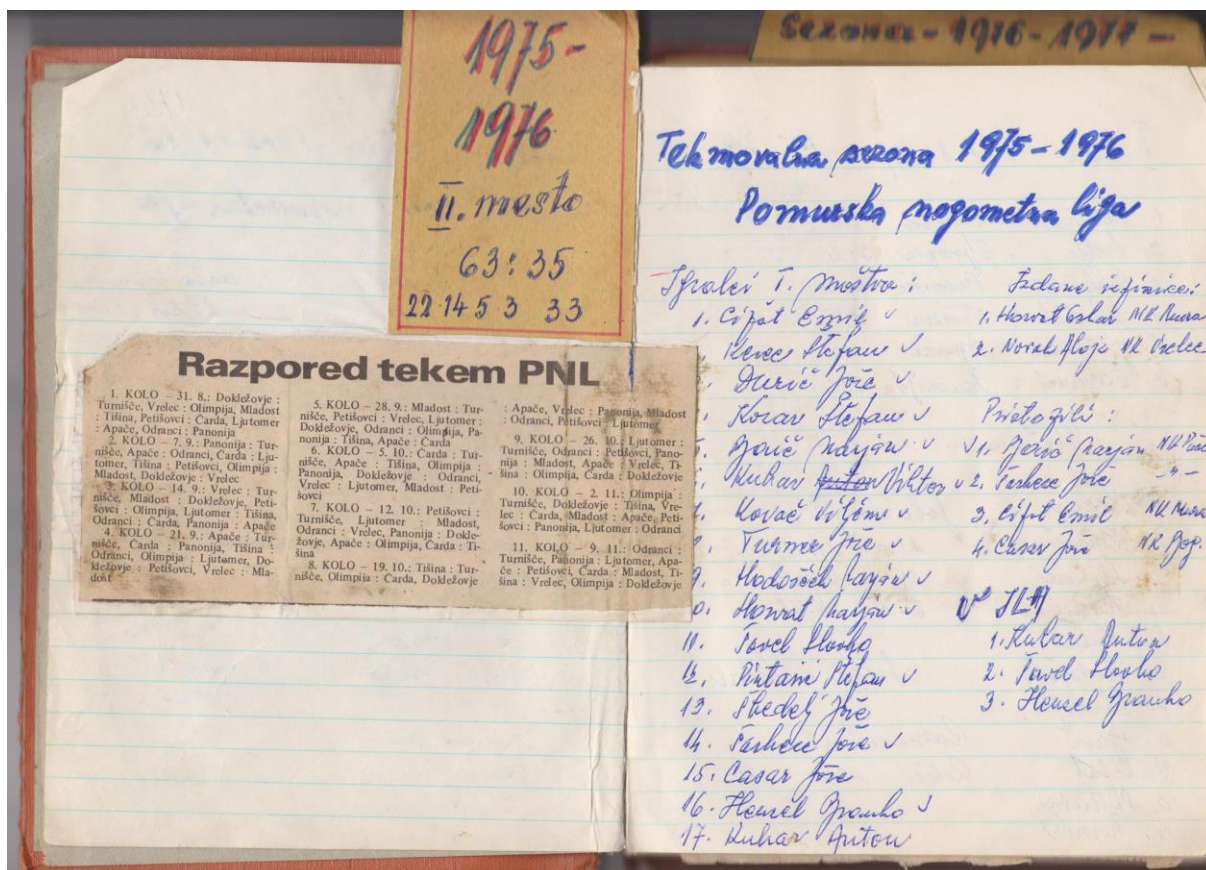 1975-
1976
II. mesto
63:35
22 14 5 3 33
Sezona - 1976 - 1977 -
Razpored tekem PNL
1. KOLO — 31. 8.: Dokležovje :
Turnišče, Vrelec : Olimpija, Mladost
: Tišina, Petišovci, Čarda, Ljutomer
: Apače, Odranci : Panonija
2. KOLO — 7. 9.: Panonija : Tur-
nišče, Apače : Odranci, Čarda : Lju-
tomer, Tišina : Petišovci, Olimpija :
Mladost, Dokležovje : Vrelec
3. KOLO — 14. 9.: Vrelec : Tur-
nišče, Mladost : Dokležovje, Peti-
šovci : Olimpija, Ljutomer : Tišina,
Odranci : Čarda, Panonija : Apače
4. KOLO — 21. 9.: Apače : Tur-
nišče, Čarda : Panonija, Tišina :
Odranci, Olimpija : Ljutomer, Do-
kležovje : Petišovci, Vrelec : Mla-
dost
5. KOLO — 28. 9.: Mladost : Tur-
nišče, Petišovci : Vrelec, Ljutomer :
Dokležovje, Odranci : Olimpija, Pa-
nonija : Tišina, Apače : Čarda
6. KOLO — 5. 10.: Čarda : Tur-
nišče, Apače : Tišina, Olimpija :
Panonija, Dokležovje : Odranci,
Vrelec : Ljutomer, Mladost : Peti-
šovci
7. KOLO — 12. 10.: Petišovci :
Turnišče, Ljutomer : Mladost,
Odranci : Vrelec, Panonija : Dokle-
žovje, Apače : Olimpija, Čarda : Ti-
šina
8. KOLO — 19. 10.: Tišina : Tur-
nišče, Olimpija : Čarda, Dokležovje
: Apače, Vrelec : Panonija, Mladost
: Odranci, Petišovci : Ljutomer
9. KOLO — 26. 10.: Ljutomer :
Turnišče, Odranci : Petišovci, Pano-
nija : Mladost, Apače : Vrelec, Ti-
šina : Olimpija, Čarda : Dokležovje
10. KOLO — 2. 11.: Olimpija :
Turnišče, Dokležovje : Tišina, Vre-
lec : Čarda, Mladost : Apače, Peti-
šovci : Panonija, Ljutomer : Odranci
11. KOLO — 9. 11.: Odranci :
Turnišče, Panonija : Ljutomer, Apa-
če : Petišovci, Čarda : Mladost, Ti-
šina : Vrelec, Olimpija : Dokležovje
Tekmovalna sezona 1975-1976
Pomurska nogometna liga
Igralci I. moštva :
1. Cipot Emil
Kerec Štefan
Durič Jože
Korav Štefan
Borič Marjan
Kuhar Anton Viktor
Kovač Viljem
Turner Jože
9. Hodošček Marjan
0. Horvat Marjan
11. Tovel Slavko
12. Štefan
13. Jože
14. Jože
15. Casar Jože
16. Hencel Branko
17. Kuhar Anton
Izdane :
1. Horvat NK Mura
2. Novak Alojz NK Vrelec
Pristopili :
1. Borič Marjan NK
2. Jože -"-
3. Cipot Emil NK Mura
4. Casar Jože NK
V JLA
1. Kuhar Anton
2. Tovel Slavko
3. Hencel Branko